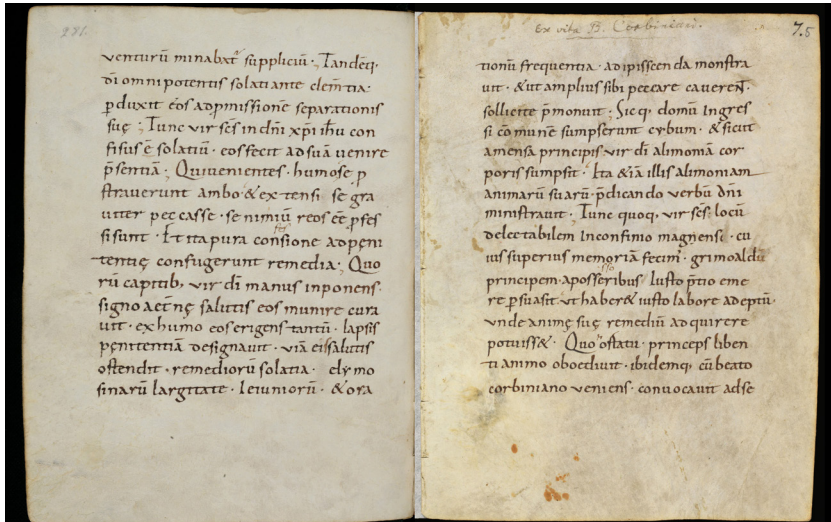 281.
venturū minabat᷑ suppliciū · Tandēq·
dī omnipotentis solatiante clem̄tia·
ꝑduxit eos adꝓmissionē separationis
suę ; Tunc vir sc̄s in dn̄i xp̄i ih̄u con
fisus ē solatiū · eos fecit ad suā uenire
p̄sentiā · Qui uenientes · humose ꝓ
straverunt ambo · & extensi se gra
uiter peccasse · se nimiū reos eē ꝓfes
si sunt · Et ita pura confsione ad pęni
tentię confugerunt remedia ; Quo
rū capitib; vir dī manus inponens·
signo aet̄nę salutis eos munire cura
uit · ex humo eos erigens tantū · lapsis
pęnitentiā designauit · viā eis salutis
ostendit · remediorū solatia · elymo
sinarū largitate · Ieiuniorū · & ora
Ex vita B. Corbiniani.
75
tionū frequentia · adipisscenda monstra
uit · & ut amplius sibi peccare caverent·
sollicite p̄monuit ; Sicq· domū Ingres
si cōmunē sumpserunt cybum · & sicut
a mensa principis vir dī alimoniā cor
poris sumpsit · Ita & iā illis alimoniam
animarū suarū p̄dicando verbū dn̄i
ministravit · Tunc quoq· vir sc̄s· locū
delectabilem In confinio magensi · cu
ius superius memoriā fecim᷒· grimoaldū
principem · a posseribus
sso
Iusto p̄tio eme
re ꝑsuasit · ut haber& iusto labore adeptū·
unde animę suę remediū adquirere
potuiss& · Quo ostatū princeps liben
ti animo oboedivit · ibidemq· cū beato
corbiniano veniens · convocauit ad se